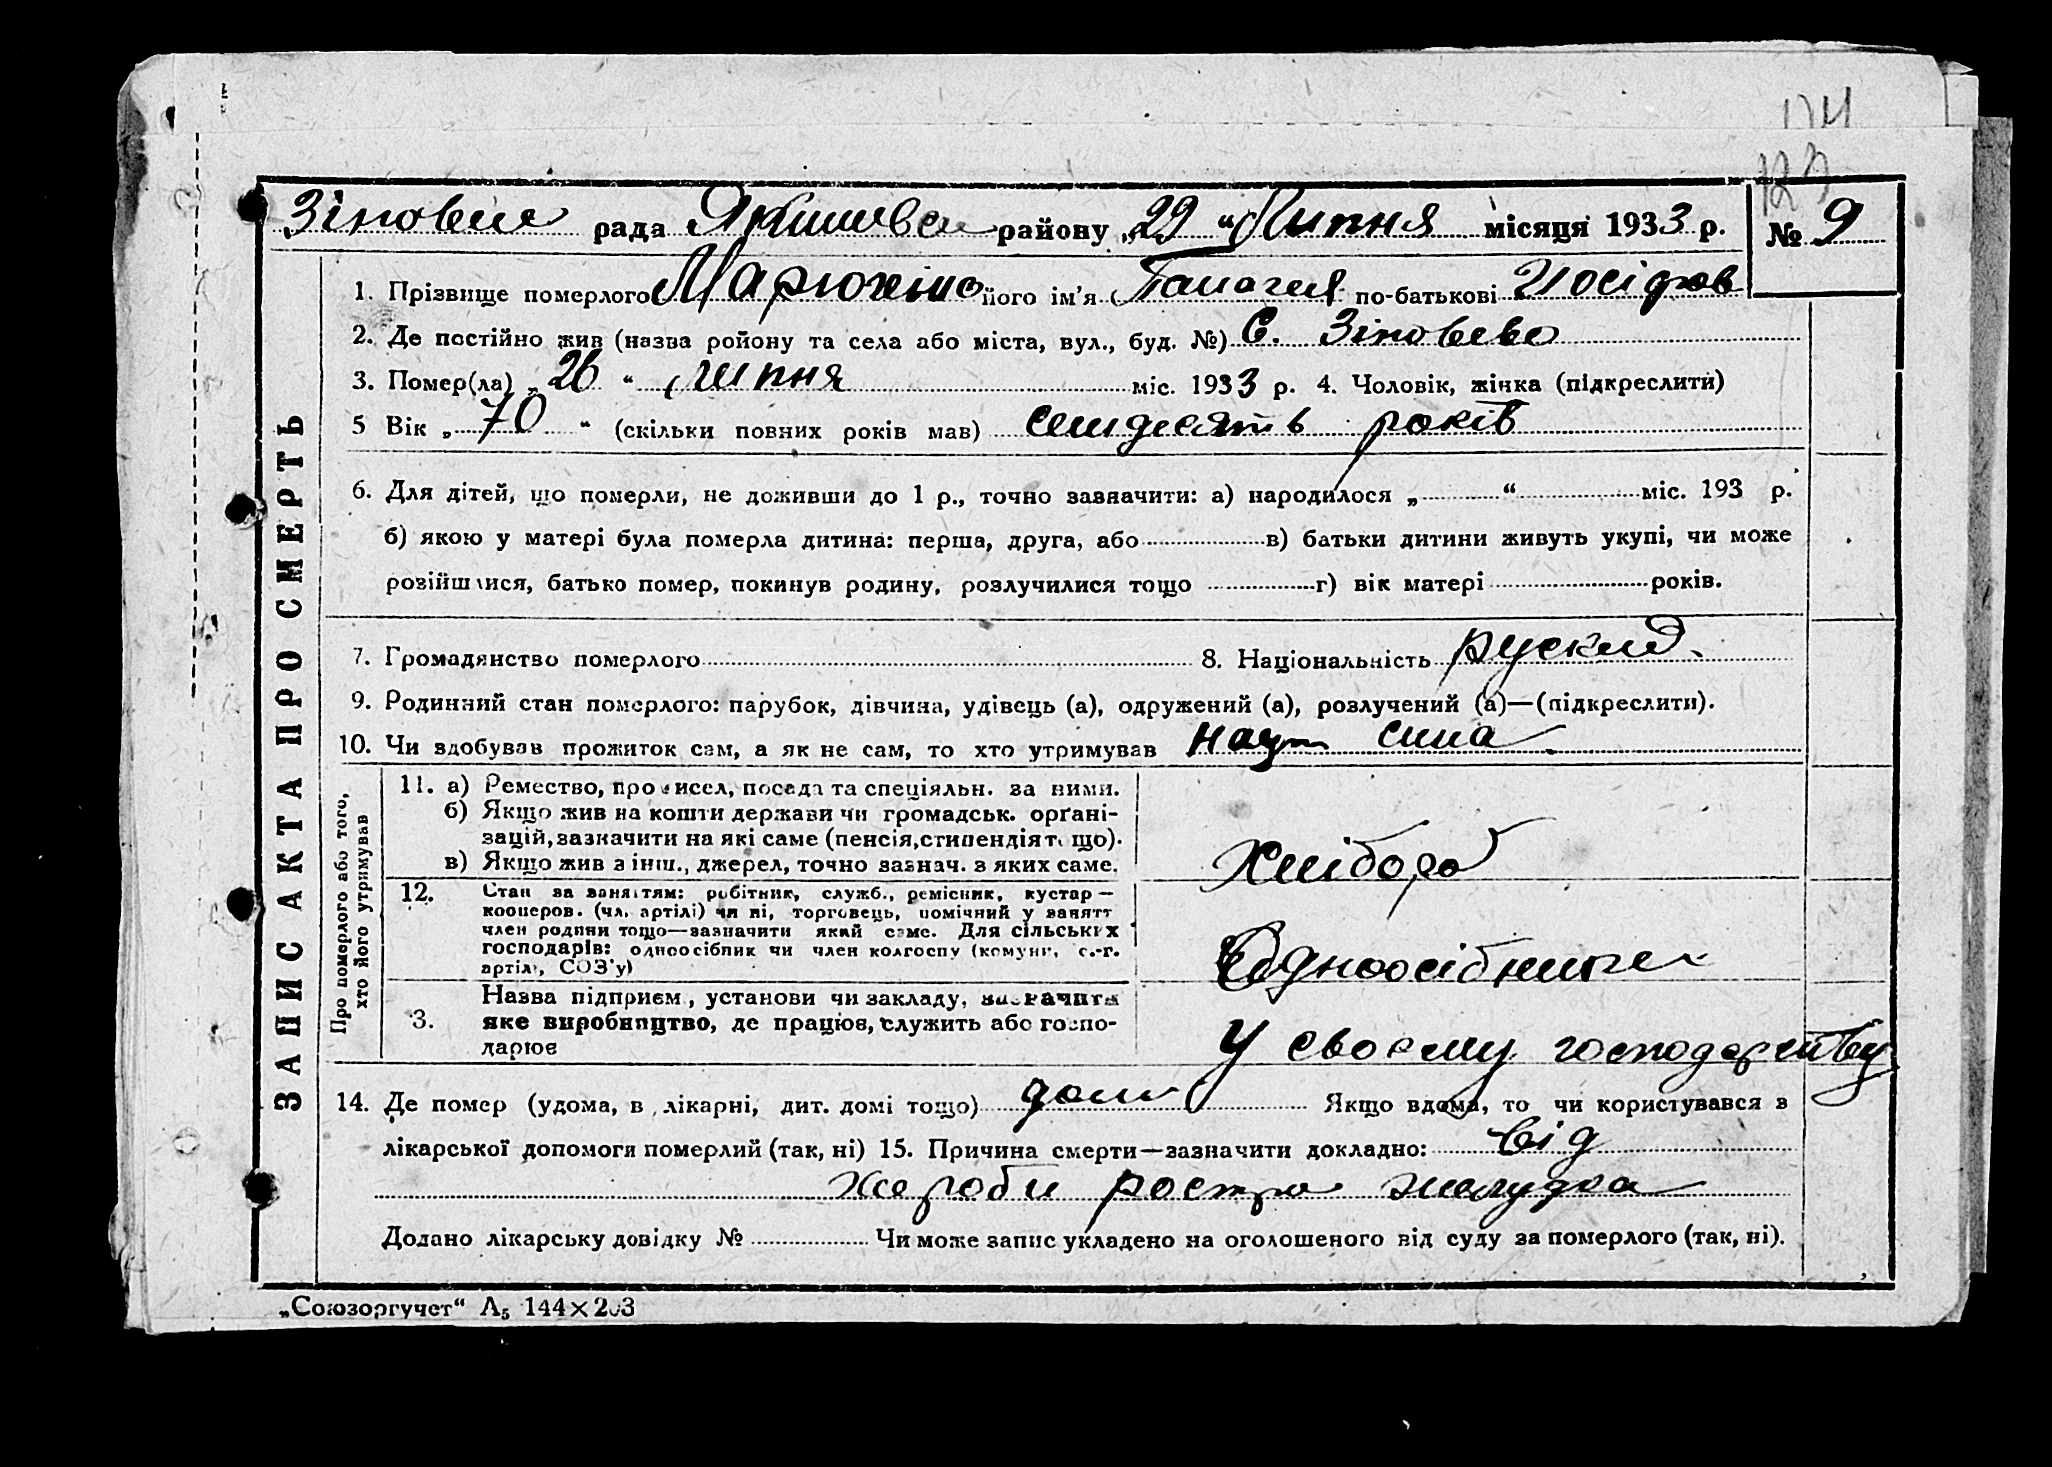 174
127
Зіновьев рада Якимівсь району „22“ Липня місяця 1933 р. № 9
1. Прізвище померлого Марюхіна його ім'я Панагея по-батькові Иосіфов
2. Де постійно жив (назва ройону та села або міста, вул., буд. №) С. Зіновьево
3. Помер(ла) „26“ липня міс. 1933 р. 4. Чоловік, жінка (підкреслити)
5 Вік „70“ (скільки повних років мав) семдесять років
6. Для дітей, що померли, не доживши до 1 р., точно зазначити: а) народилося „ “ міс. 193 р.
б) якою у матері була померла дитина: перша, друга, або в) батьки дитини живуть укупі, чи може
розійшлися, батько помер, покинув родину, розлучилися тощо г) вік матері років.
7. Громадянство померлого 8. Національність руский.
9. Родинний стан померлого: парубок, дівчина, удівець (а), одружений (а), розлучений (а)—(підкреслити).
10. Чи здобував прожиток сам, а як не сам, то хто утримував сина
ЗАПИС АКТА ПРО СМЕРТЬ
Про померлого або того,
хто його утримував
11. а) Ремество, професел, посада та спеціяльн. за ними.
б) Якщо жив на кошти держави чи громадськ. орґані-
зацій, зазначити на які саме (пенсія, стипендія тощо).
в) Якщо жив з інш., джерел, точно зазнач. з яких саме.
хлібороб
12. Стан за заняттям: робітник, служб., ремісник, кустар —
кооперов. (чл. артілі) чи ні, торговець, помічний у занятт
член родини тощо—зазначити який саме. Для сільських
господарів: одноосібник чи член колгоспу (комуни, с.-г.
артілі, СОЗ'у)
Одноосібник
3. Назва підприєм., установи чи закладу, зазначити
яке виробництво, де працює, служить або госпо-
дарює
У своему господарству
14. Де помер (удома, в лікарні, дит. домі тощо) дома Якщо вдома, то чи користувався з
лікарської допомоги померлий (так, ні) 15. Причина смерти—зазначити докладно: від
хороби желудка
Додано лікарську довідку № Чи може запис укладено на оголошеного від суду за померлого (так, ні).
„Союзоргучет“ А5 144×203